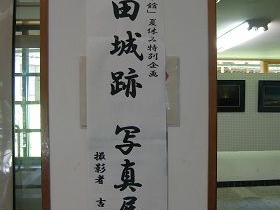 館」夏休み特別企画
田城跡 写真展
撮影者 吉